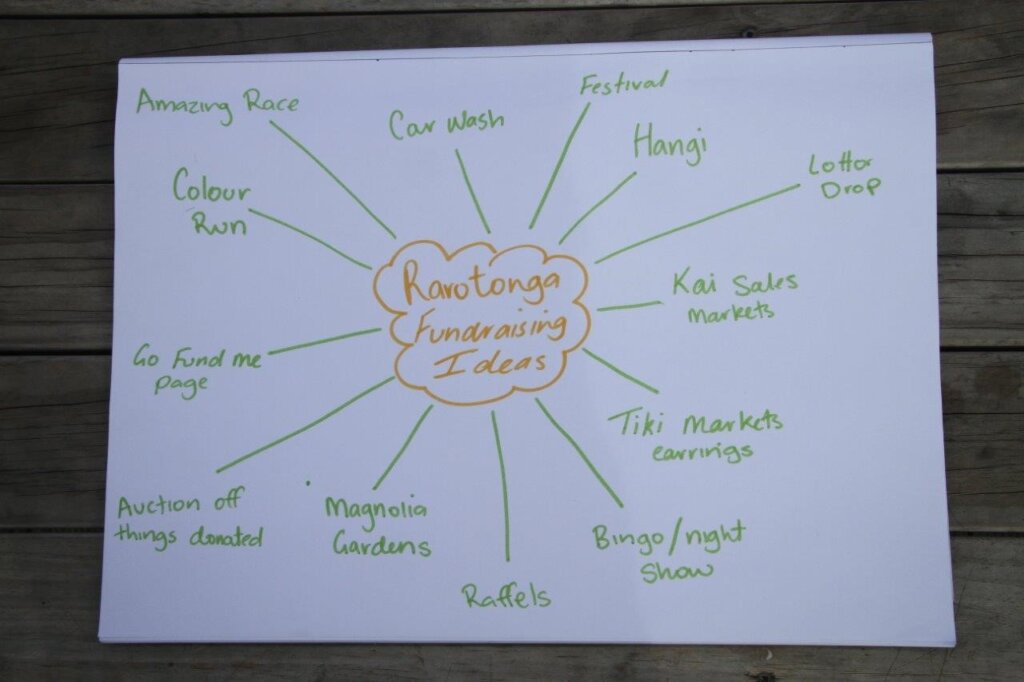 Rarotonga
Fundraising
Ideas
Amazing Race
Car Wash
Festival
Hangi
Lotto
Drop
Kai Sales
Markets
Tiki Markets
earrings
Bingo/night
Show
Raffels
Magnolia
Gardens
Auction off
things donated
Go Fund me
page
Colour
Run